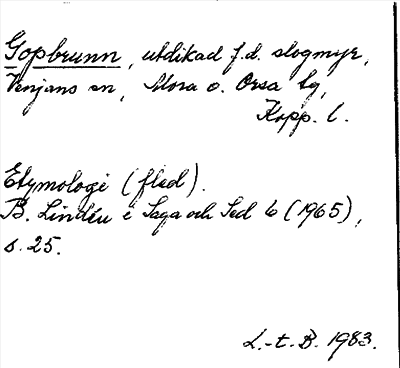 Gopbrunn, utdikad f.d. slogmyr,
Venjans sn, Mora o. Orsa tg,
Kopp. l.
Etymologi (fled).
B. Lindén i Saga och Sed 6 (1965),
s. 25.
L.-t. B. 1983.